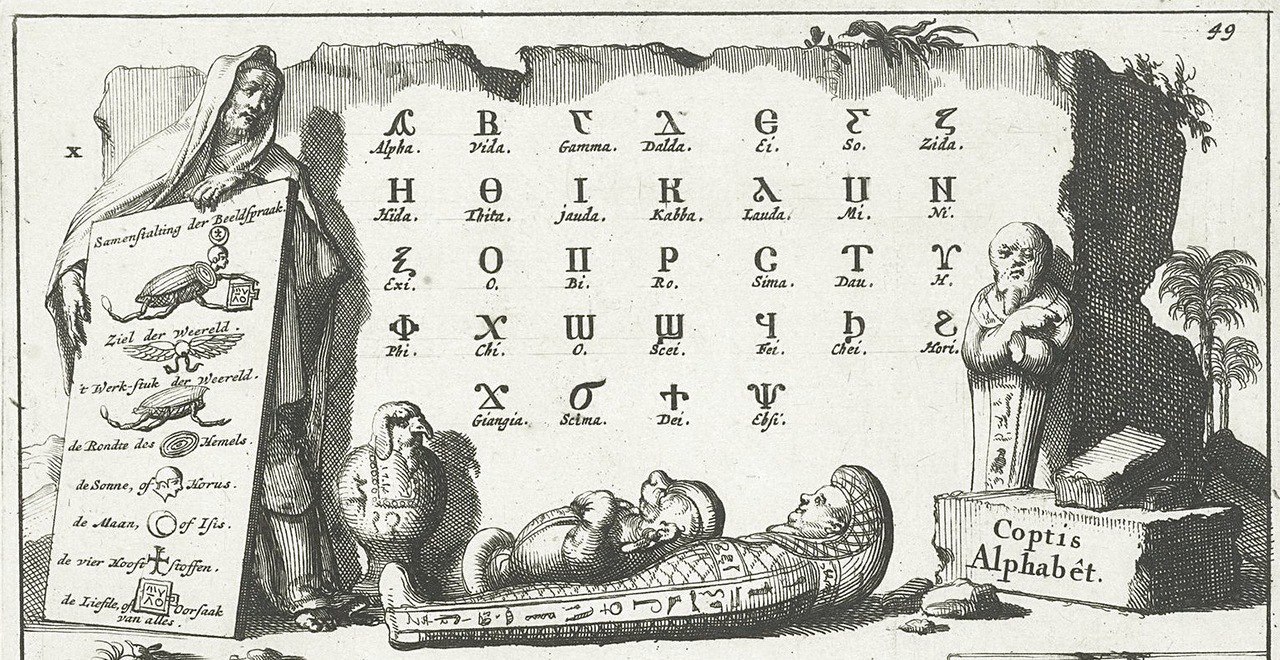 49
x
Samenstalting der Beeldspraak.
Ziel der Weereld.
't Werk-stuk der Weereld.
de Rondte des Hemels.
de Sonne, of Horus.
de Maan, of Isis.
de vier Hooft stoffen.
de Liefde, of Oorsaak
van alles.
Ⲁ Ⲃ Ⲅ Ⲇ Ⲉ Ⲋ Ⲍ
Alpha. Vida. Gamma. Dalda. Ei. So. Zida.
Ⲏ Ⲑ Ⲓ Ⲕ Ⲗ Ⲙ Ⲛ
Hida. Thita. jauda. Kabba. Lauda. Mi. Ni.
Ⲝ Ⲟ Ⲡ Ⲣ Ⲥ Ⲧ Ⲩ
Exi. O. Bi. Ro. Sima. Dau. H.
Ⲫ Ⲭ Ⲱ Ϣ Ϥ Ϧ Ϩ
Phi. Chi. O. Scei. Fei. Chei. Hori.
Ϫ Ϭ Ϯ Ⲯ
Giangia. Scima. Dei. Ebsi.
Coptis
Alphabêt.